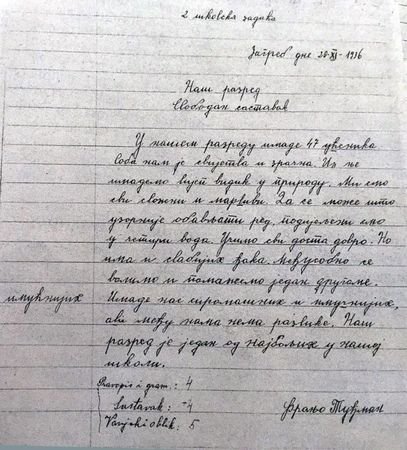 2 школска задаћа
Загреб дне 20-XI-1936
Наш разред
Слободан саставак
У нашем разреду имаде 47 ученика.
Соба нам је свијетла и зрачна. Из ње
имадемо лијеп видик у природу. Ми смо
сви сложни и марљиви. Да се може што
узорније обављати ред, подијељени смо
у четири вода. Учимо сви доста добро. Но
има и слабијих ђака. Међусобно се
волимо и помажемо један другоме.
имућнијих
Имаде нас сиромашних и имучнијих,
али међу нама нема разлике. Наш
разред је један од најбољих у нашој
школи.
Pravopis i gram.: 4
Sastavak: -4
Vanjski oblik: 5
Фрањо Туђман